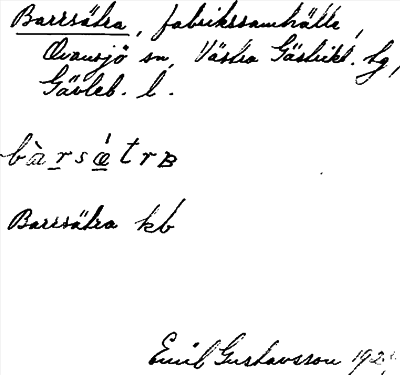 Barrsätra, fabrikssamhälle,
Ovansjö sn, Västra Gästrikl. tg,
Gävleb. l.
bàrsǽtrʙ
Barrsätra kb
Emil Gustavsson